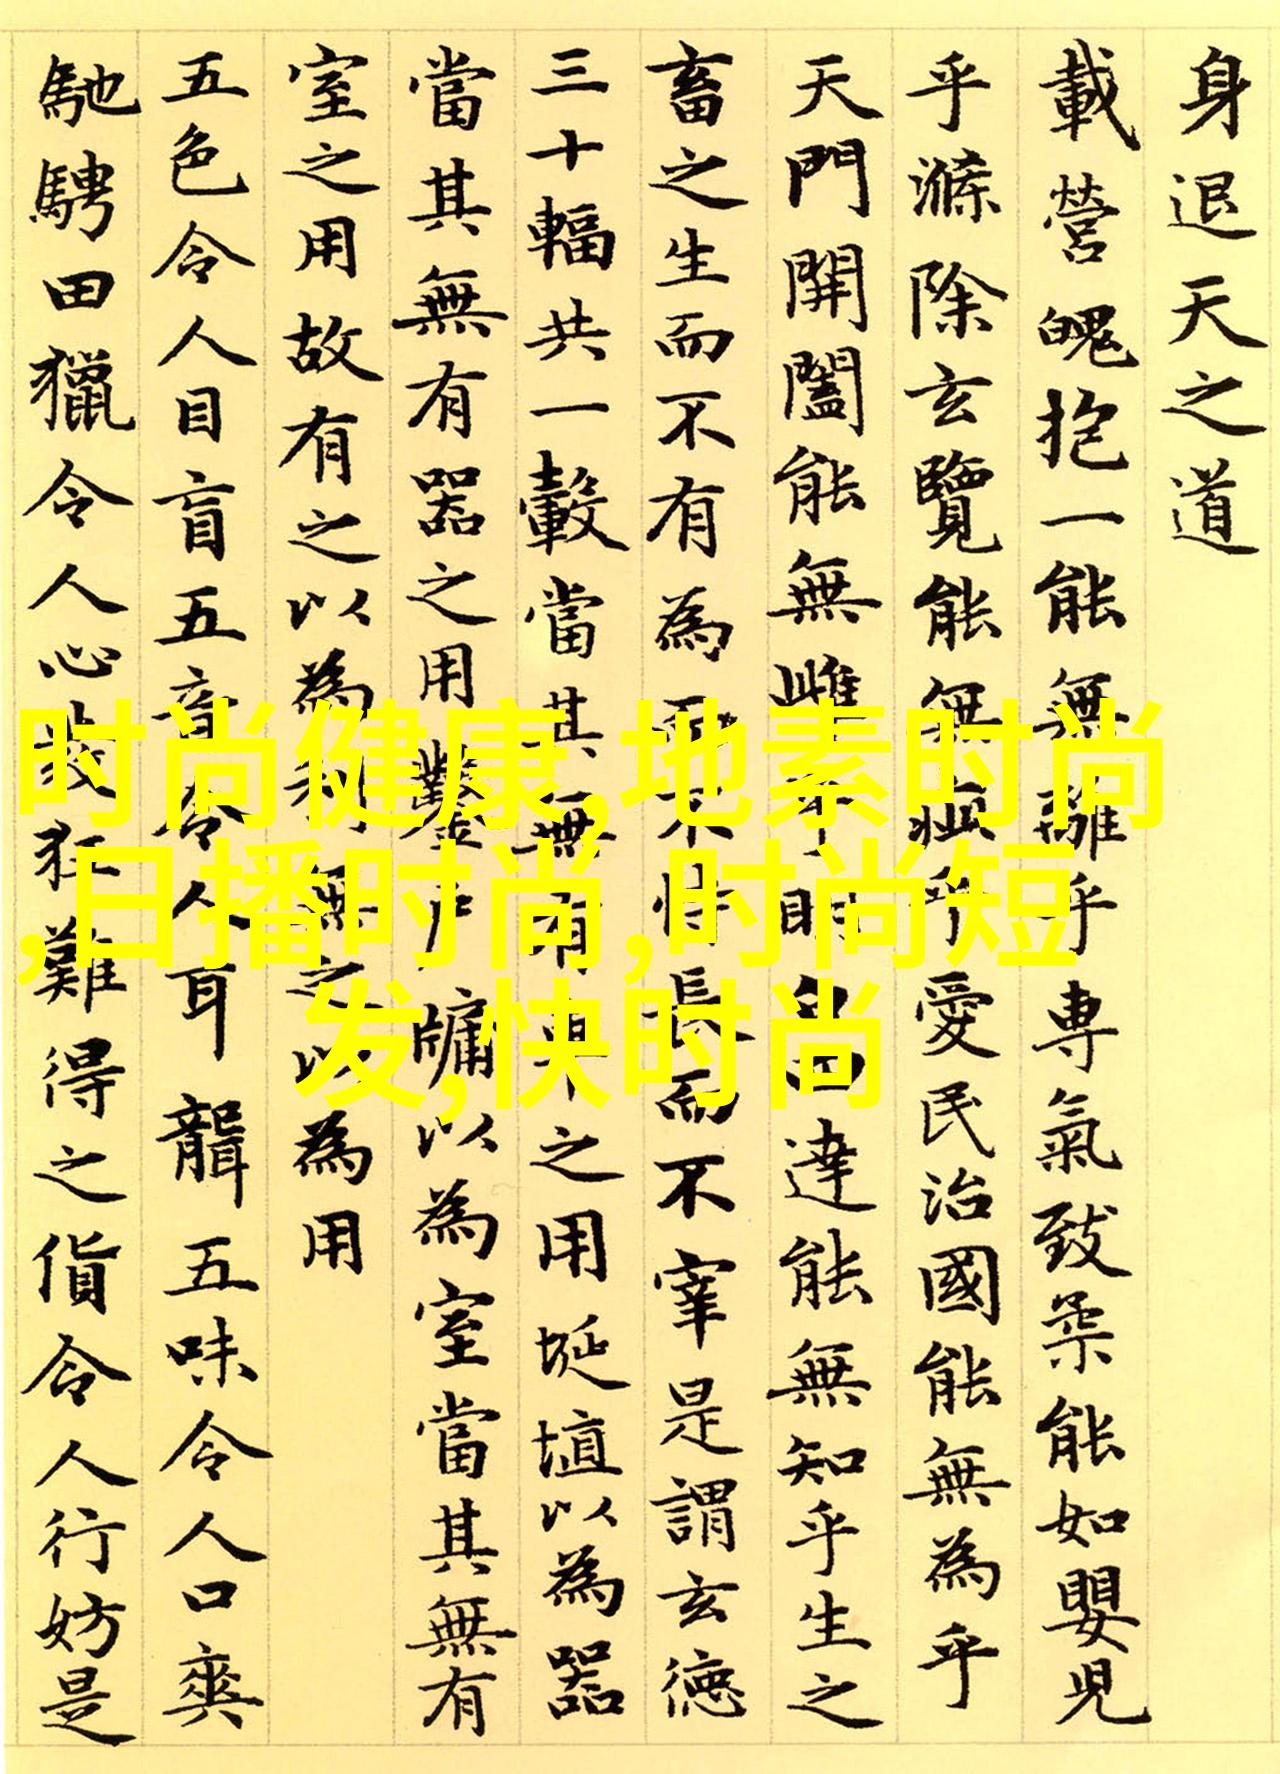 身退天之道
載營魄抱一能無離乎專氣致柔能如嬰兒
乎滌除玄覽能無疵乎愛民治國能無為乎
天門開闔能無雌乎明白達能無知乎生之
畜之生而不有為而不恃長而不宰是謂玄德
三十輻共一轂當其無有車之用埏埴以為器
當其無有器之用鑿戶牖以為室當其無有
室之用故有之以為利無之以為用
五色令人目盲五音令人耳聾五味令人口爽
馳騁田獵令人心發狂難得之貨令人行妨是
时尚健康,地素时尚
,日播时尚,时尚短
发,快时尚